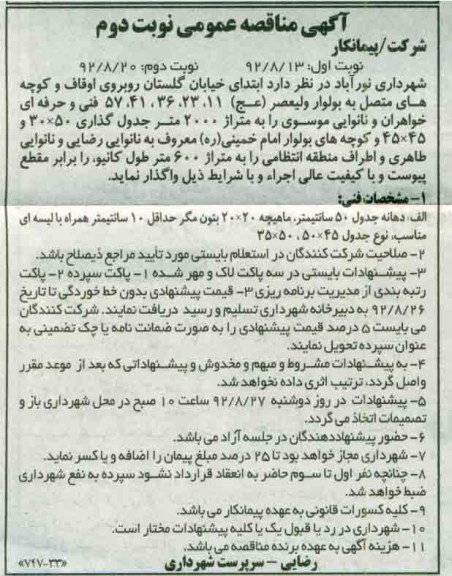 آگهی مناقصه عمومی نوبت دوم
شرکت/پیمانکار
نوبت اول: ۹۲/۸/۱۳ نوبت دوم: ۹۲/۸/۲۰
شهرداری نورآباد در نظر دارد ابتدای خیابان گلستان روبروی اوقاف و کوچه
های متصل به بولوار ولیعصر (عج) ۱۱، ۲۳، ۳۶، ۴۱، ۵۷ فنی و حرفه ای
خواهران و نانوایی موسوی را به متراژ ۲۰۰۰ متر جدول گذاری ۵۰×۳۰ و
۴۵×۴۵ و کوچه های بولوار امام خمینی(ره) معروف به نانوایی رضایی و نانوایی
طاهری و اطراف منطقه انتظامی را به متراژ ۶۰۰ متر طول کانیو، را برابر مقطع
پیوست و با کیفیت عالی اجراء و با شرایط ذیل واگذار نماید.
۱- مشخصات فنی:
الف: دهانه جدول ۵۰ سانتیمتر، ماهیچه ۲۰×۲۰ بتون مگر حداقل ۱۰ سانتیمتر همراه با لیسه ای
مناسب، نوع جدول ۴۵×۵۰ ، ۵۰×۳۵
۲- صلاحیت شرکت کنندگان در استعلام بایستی مورد تأیید مراجع ذیصلاح باشد.
۳- پیشنهادات بایستی در سه پاکت لاک و مهر شده ۱- پاکت سپرده ۲- پاکت
رتبه بندی از مدیریت برنامه ریزی ۳- قیمت پیشنهادی بدون خط خوردگی تا تاریخ
۹۲/۸/۲۶ به دبیرخانه شهرداری تسلیم و رسید دریافت نمایند. شرکت کنندگان
می بایست ۵ درصد قیمت پیشنهادی را به صورت ضمانت نامه یا چک تضمینی به
عنوان سپرده تحویل نمایند.
۴- به پیشنهادات مشروط و مبهم و مخدوش و پیشنهاداتی که بعد از موعد مقرر
واصل گردد، ترتیب اثری داده نخواهد شد.
۵- پیشنهادات در روز دوشنبه ۹۲/۸/۲۷ ساعت ۱۰ صبح در محل شهرداری باز و
تصمیمات اتخاذ می گردد.
۶- حضور پیشنهاددهندگان در جلسه آزاد می باشد.
۷- شهرداری مجاز خواهد بود تا ۲۵ درصد مبلغ پیمان را اضافه و یا کسر نماید.
۸- چنانچه نفر اول تا سوم حاضر به انعقاد قرارداد نشود سپرده به نفع شهرداری
ضبط خواهد شد.
۹- کلیه کسورات قانونی به عهده پیمانکار می باشد.
۱۰- شهرداری در رد یا قبول یک یا کلیه پیشنهادات مختار است.
۱۱- هزینه آگهی به عهده برنده مناقصه می باشد.
رضایی – سرپرست شهرداری
«۷۴۷-۳۳»